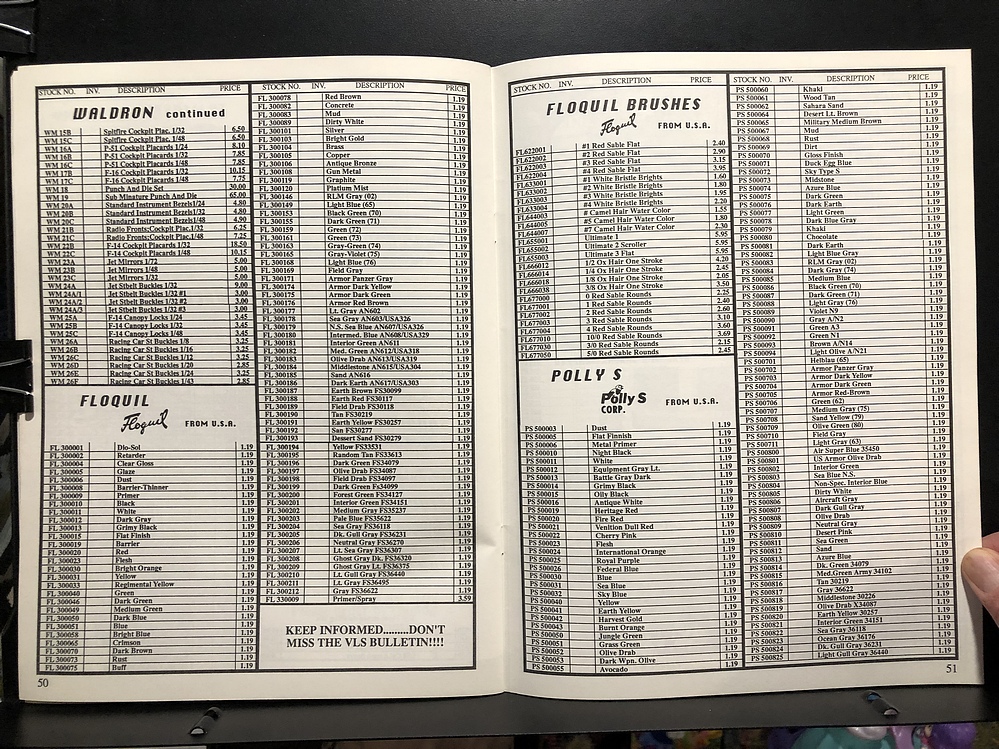 STOCK NO. INV. DESCRIPTION PRICE
WALDRON continued
WM 15B Spitfire Cockpit Plac. 1/32 6.50
WM 15C Spitfire Cockpit Plac. 1/48 6.50
WM 16A P-51 Cockpit Placards 1/24 8.10
WM 16B P-51 Cockpit Placards 1/32 7.85
WM 16C P-51 Cockpit Placards 1/48 7.85
WM 17B F-16 Cockpit Placards 1/32 10.15
WM 17C F-16 Cockpit Placards 1/48 7.75
WM 18 Punch And Die Set 30.00
WM 19 Sub Minature Punch And Die 65.00
WM 20A Standard Instrument Bezels1/24 4.80
WM 20B Standard Instrument Bezels1/32 4.80
WM 20C Standard Instrument Bezels1/48 4.90
WM 21B Radio Fronts;Cockpit Plac.1/32 6.25
WM 21C Radio Fronts;Cockpit Plac.1/48 7.25
WM 22B F-14 Cockpit Placards 1/32 18.50
WM 22C F-14 Cockpit Placards 1/48 10.15
WM 23A Jet Mirrors 1/72 5.00
WM 23B Jet Mirrors 1/48 5.00
WM 23C Jet Mirrors 1/32 5.00
WM 24A Jet Stbelt Buckles 1/32 9.00
WM 24A/1 Jet Stbelt Buckles 1/32 #1 3.00
WM 24A/2 Jet Stbelt Buckles 1/32 #2 3.00
WM 24A/3 Jet Stbelt Buckles 1/32 #3 3.00
WM 25A F-14 Canopy Locks 1/24 3.45
WM 25B F-14 Canopy Locks 1/32 3.45
WM 25C F-14 Canopy Locks 1/48 3.45
WM 26A Racing Car St Buckles 1/8 3.25
WM 26B Racing Car St Buckles 1/12 3.25
WM 26C Racing Car St Buckles 1/16 3.25
WM 26D Racing Car St Buckles 1/20 2.85
WM 26E Racing Car St Buckles 1/24 3.25
WM 26F Racing Car St Buckles 1/43 2.85
FLOQUIL
Floquil FROM U.S.A.
FL 300001 Dio-Sol 1.19
FL 300002 Retarder 1.19
FL 300004 Clear Gloss 1.19
FL 300005 Glaze 1.19
FL 300006 Dust 1.19
FL 300008 Barrier-Thinner 1.19
FL 300009 Primer 1.19
FL 300010 Black 1.19
FL 300011 White 1.19
FL 300012 Dark Gray 1.19
FL 300013 Grimy Black 1.19
FL 300015 Flat Finish 1.19
FL 300019 Barrier 1.19
FL 300020 Red 1.19
FL 300023 Flesh 1.19
FL 300030 Bright Orange 1.19
FL 300031 Yellow 1.19
FL 300033 Regimental Yellow 1.19
FL 300040 Green 1.19
FL 300046 Dark Green 1.19
FL 300049 Medium Green 1.19
FL 300050 Dark Blue 1.19
FL 300051 Blue 1.19
FL 300058 Bright Blue 1.19
FL 300065 Crimson 1.19
FL 300070 Dark Brown 1.19
FL 300073 Rust 1.19
FL 300075 Buff 1.19
50
STOCK NO. INV. DESCRIPTION PRICE
FL 300078 Red Brown 1.19
FL 300082 Concrete 1.19
FL 300083 Mud 1.19
FL 300089 Dirty White 1.19
FL 300101 Silver 1.19
FL 300103 Bright Gold 1.19
FL 300104 Brass 1.19
FL 300105 Copper 1.19
FL 300106 Antique Bronze 1.19
FL 300108 Gun Metal 1.19
FL 300119 Graphite 1.19
FL 300120 Platium Mist 1.19
FL 300146 RLM Gray (02) 1.19
FL 300149 Light Blue (65) 1.19
FL 300153 Black Green (70) 1.19
FL 300155 Dark Green (71) 1.19
FL 300159 Green (72) 1.19
FL 300161 Green (73) 1.19
FL 300163 Gray-Green (74) 1.19
FL 300165 Gray-Violet (75) 1.19
FL 300168 Light Blue (76) 1.19
FL 300169 Field Gray 1.19
FL 300171 Armor Panzer Gray 1.19
FL 300174 Armor Dark Yellow 1.19
FL 300175 Armor Dark Green 1.19
FL 300176 Armor Red Brown 1.19
FL 300177 Lt. Gray AN602 1.19
FL 300178 Sea Gray AN603/USA326 1.19
FL 300179 N.S. Sea Blue AN607/USA326 1.19
FL 300180 Intermed. Blue AN608/USA329 1.19
FL 300181 Interior Green AN611 1.19
FL 300182 Med. Green AN612/USA318 1.19
FL 300183 Olive Drab AN613/USA319 1.19
FL 300184 Middlestone AN615/USA304 1.19
FL 300185 Sand AN616 1.19
FL 300186 Dark Earth AN617/USA303 1.19
FL 300187 Earth Brown FS30099 1.19
FL 300188 Earth Red FS30117 1.19
FL 300189 Field Drab FS30118 1.19
FL 300190 Tan FS30219 1.19
FL 300191 Earth Yellow FS30257 1.19
FL 300192 San FS30277 1.19
FL 300193 Dessert Sand FS30279 1.19
FL 300194 Yellow FS33531 1.19
FL 300195 Random Tan FS33613 1.19
FL 300196 Dark Green FS34079 1.19
FL 300197 Olive Drab FS34087 1.19
FL 300198 Field Drab FS34097 1.19
FL 300199 Dark Green Fs34099 1.19
FL 300200 Forest Green FS34127 1.19
FL 300201 Interior Green FS34151 1.19
FL 300202 Medium Gray FS35237 1.19
FL 300203 Pale Blue FS35622 1.19
FL 300204 Sea Gray FS36118 1.19
FL 300205 Dk. Gull Gray FS36231 1.19
FL 300206 Neutral Gray FS36270 1.19
FL 300207 Lt. Sea Gray FS36307 1.19
FL 300208 Ghost Gray Dk. FS36320 1.19
FL 300209 Ghost Gray Lt FS36375 1.19
FL 300210 Lt Gull Gray FS36440 1.19
FL 300211 Lt Gray FS36495 1.19
FL 300212 Gray FS36622 1.19
FL 330009 Primer/Spray 3.59
KEEP INFORMED.........DON'T
MISS THE VLS BULLETIN!!!!
STOCK NO. INV. DESCRIPTION PRICE
FLOQUIL BRUSHES
Floquil FROM U.S.A.
FL622001 #1 Red Sable Flat 2.40
FL622002 #2 Red Sable Flat 2.90
FL622003 #3 Red Sable Flat 3.15
FL622004 #4 Red Sable Flat 3.95
FL633001 #1 White Bristle Brights 1.60
FL633002 #2 White Bristle Brights 1.80
FL633003 #3 White Bristle Brights 1.95
FL633004 #4 White Bristle Brights 2.20
FL644003 # Camel Hair Water Color 1.55
FL644005 #5 Camel Hair Water Color 1.80
FL644007 #7 Camel Hair Water Color 2.30
FL655001 Ultimate 1 5.95
FL655002 Ultimate 2 Scroller 5.95
FL655003 Ultimate 3 Flat 5.95
FL666012 1/2 Ox Hair One Stroke 4.20
FL666014 1/4 Ox Hair One Stroke 2.45
FL666018 1/8 Ox Hair One Stroke 2.05
FL666038 3/8 Ox Hair One Stroke 3.50
FL677000 0 Red Sable Rounds 2.25
FL677001 1 Red Sable Rounds 2.40
FL677002 2 Red Sable Rounds 2.60
FL677003 3 Red Sable Rounds 3.10
FL677004 4 Red Sable Rounds 3.60
FL677010 10/0 Red Sable Rounds 3.69
FL677030 3/0 Red Sable Rounds 2.15
FL677050 5/0 Red Sable Rounds 2.45
POLLY S
Polly S
CORP. FROM U.S.A.
PS 500003 Dust 1.19
PS 500005 Flat Finnish 1.19
PS 500006 Metal Primer 1.19
PS 500010 Night Black 1.19
PS 500011 White 1.19
PS 500012 Equipment Gray Lt. 1.19
PS 500013 Battle Gray Dark 1.19
PS 500014 Grimy Black 1.19
PS 500015 Oily Black 1.19
PS 500016 Antique White 1.19
PS 500019 Heritage Red 1.19
PS 500020 Fire Red 1.19
PS 500021 Venition Dull Red 1.19
PS 500022 Cherry Pink 1.19
PS 500023 Flesh 1.19
PS 500024 International Orange 1.19
PS 500025 Royal Purple 1.19
PS 500026 Federal Blue 1.19
PS 500030 Blue 1.19
PS 500031 Sea Blue 1.19
PS 500032 Sky Blue 1.19
PS 500040 Yellow 1.19
PS 500041 Earth Yellow 1.19
PS 500042 Harvest Gold 1.19
PS 500043 Burnt Orange 1.19
PS 500050 Jungle Green 1.19
PS 500051 Grass Green 1.19
PS 500052 Olive Drab 1.19
PS 500053 Dark Wpn. Olive 1.19
PS 500055 Avocado 1.19
STOCK NO. INV. DESCRIPTION PRICE
PS 500060 Khaki 1.19
PS 500061 Wood Tan 1.19
PS 500062 Sahara Sand 1.19
PS 500064 Desert Lt. Brown 1.19
PS 500065 Military Medium Brown 1.19
PS 500067 Mud 1.19
PS 500068 Rust 1.19
PS 500069 Dirt 1.19
PS 500070 Gloss Finish 1.19
PS 500071 Duck Egg Blue 1.19
PS 500072 Sky Type S 1.19
PS 500073 Midstone 1.19
PS 500074 Azure Blue 1.19
PS 500075 Dark Green 1.19
PS 500076 Dark Earth 1.19
PS 500077 Light Green 1.19
PS 500078 Dark Blue Gray 1.19
PS 500079 Khaki 1.19
PS 500080 Chocolate 1.19
PS 500081 Dark Earth 1.19
PS 500082 Light Blue Gray 1.19
PS 500083 RLM Gray (02) 1.19
PS 500084 Dark Gray (74) 1.19
PS 500085 Medium Blue 1.19
PS 500086 Black Green (70) 1.19
PS 500087 Dark Green (71) 1.19
PS 500088 Light Gray (76) 1.19
PS 500089 Violet N9 1.19
PS 500090 Gray A/N2 1.19
PS 500091 Green A3 1.19
PS 500092 Green N3 1.19
PS 500093 Brown A/N14 1.19
PS 500094 Light Olive A/N21 1.19
PS 500701 Helblau (65) 1.19
PS 500702 Armor Panzer Gray 1.19
PS 500703 Armor Dark Yellow 1.19
PS 500704 Armor Dark Green 1.19
PS 500705 Armor Red-Brown 1.19
PS 500706 Green (62) 1.19
PS 500707 Medium Gray (75) 1.19
PS 500708 Sand Yellow (79) 1.19
PS 500709 Olive Green (80) 1.19
PS 500710 Field Gray 1.19
PS 500711 Light Gray (63) 1.19
PS 500800 Air Super Blue 35450 1.19
PS 500801 US Armor Olive Drab 1.19
PS 500802 Interior Green 1.19
PS 500803 Sea Blue N.S. 1.19
PS 500804 Non-Spec. Interior Blue 1.19
PS 500805 Dirty White 1.19
PS 500806 Aircraft Gray 1.19
PS 500807 Dark Gull Gray 1.19
PS 500808 Olive Drab 1.19
PS 500809 Neutral Gray 1.19
PS 500810 Desert Pink 1.19
PS 500811 Sea Green 1.19
PS 500812 Sand 1.19
PS 500813 Azure Blue 1.19
PS 500814 Dk. Green 34079 1.19
PS 500815 Med.Green Army 34102 1.19
PS 500816 Tan 30219 1.19
PS 500817 Gray 36622 1.19
PS 500818 Middlestone 30226 1.19
PS 500819 Olive Drab X34087 1.19
PS 500820 Earth Yellow 30257 1.19
PS 500821 Interior Green 34151 1.19
PS 500822 Sea Gray 36118 1.19
PS 500823 Ocean Gray 36176 1.19
PS 500824 Dk. Gull Gray 36231 1.19
PS 500825 Light Gull Gray 36440 1.19
51